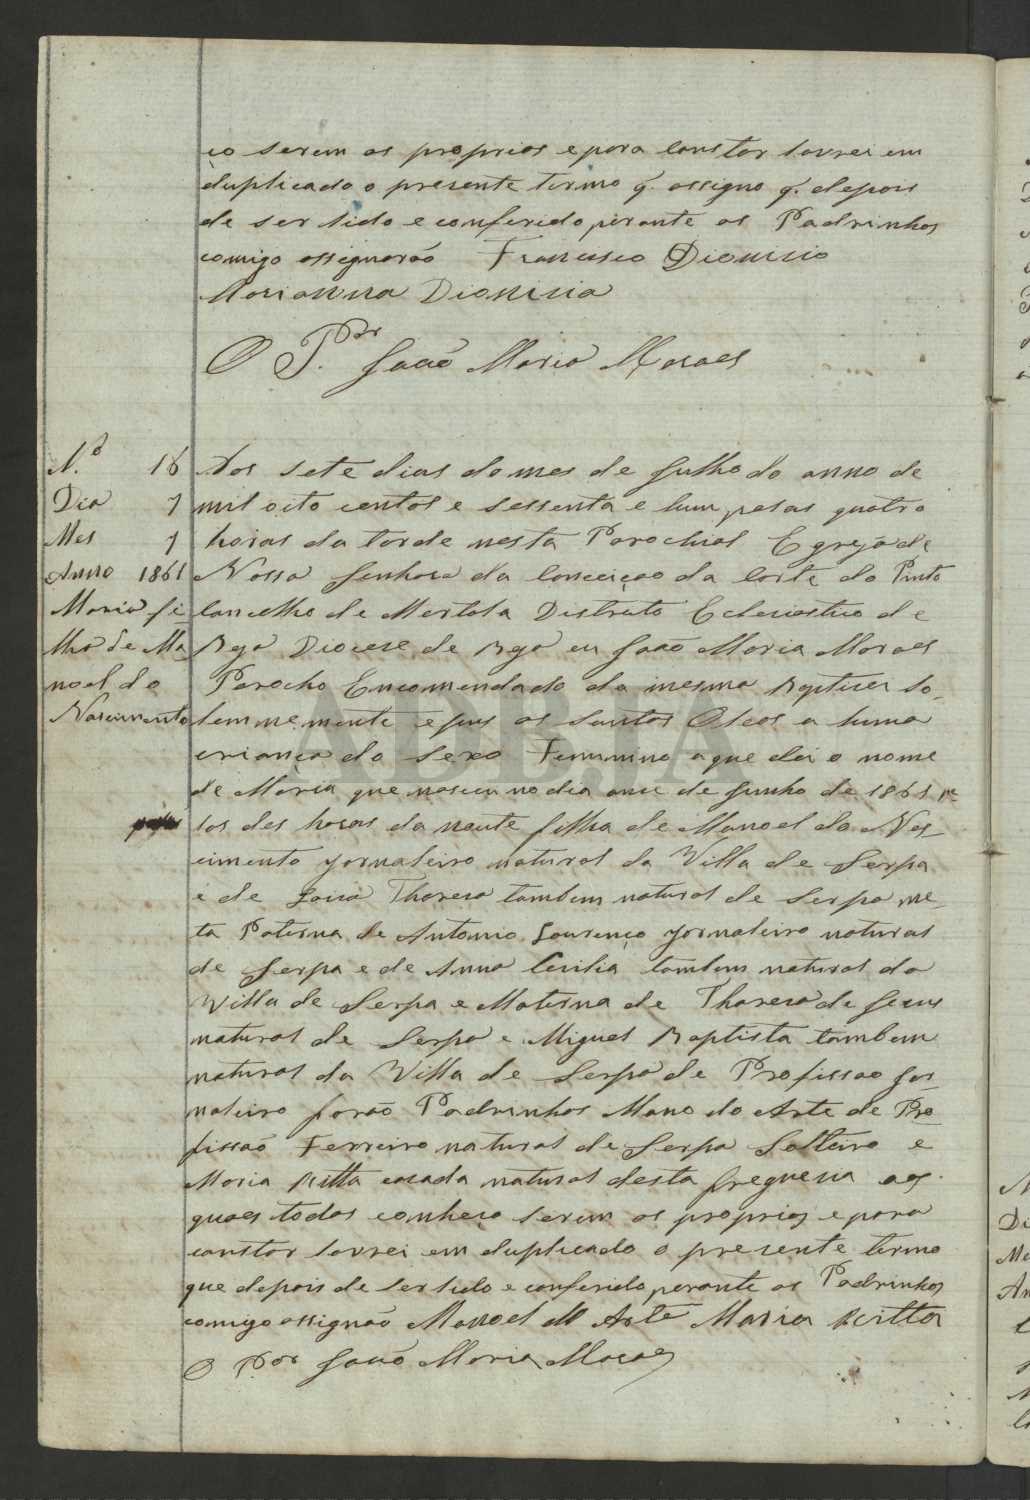 ço serem os proprios e para constar lavrei em
duplicado o presente termo q. assigno q. depois
de ser lido e conferido perante os Padrinhos
comigo assignarão Francisco Dionisio
Marianna Dionisia
O P.or João Maria Moraes
N.º 16
Dia 7
Mes 7
Anno 1861
Maria fi-
lha de Ma-
noel do
Nascimento
Aos sete dias do mes de Julho do anno de
mil oito centos e sessenta e hum pelas quatro
horas da tarde nesta Parochial Egreja de
Nossa Senhora da Conceiçao da Corte do Pinto
Concelho de Mertola Distrito Eclesiastico de
Beja Diocese de Beja eu João Maria Moraes
Parocho Encomendado da mesma Baptisei so-
lemnemente e pus os Santos Oleos a huma
criança do sexo Feminino a que dei o nome
de Maria que nasceu no dia onze de Junho de 1861 pe
las des horas da noute filha de Manoel do Nas-
cimento jornaleiro natural da Villa de Serpa
e de Thareza tambem natural de Serpa ne-
ta Paterna de Antonio Lourenço jornaleiro natural
de Serpa e de Anna Cecilia tambem natural da
Villa de Serpa e Materna de Thareza de Jesus
natural de Serpa e Miguel Baptista tambem
natural da Villa de Serpa de Profissao Jor
naleiro forão Padrinhos Mano do Arte de Pro
fissão Ferreiro natural de Serpa Solteiro e
Maria Ritta casada natural desta freguesia aos
quaes todos conheço serem os proprios e para
constar lavrei em duplicado o presente termo
que depois de ser lido e conferido perante os Padrinhos
comigo assignão Manoel d Arte Maria Ritta
O P.or João Maria Moraes
ADBJA